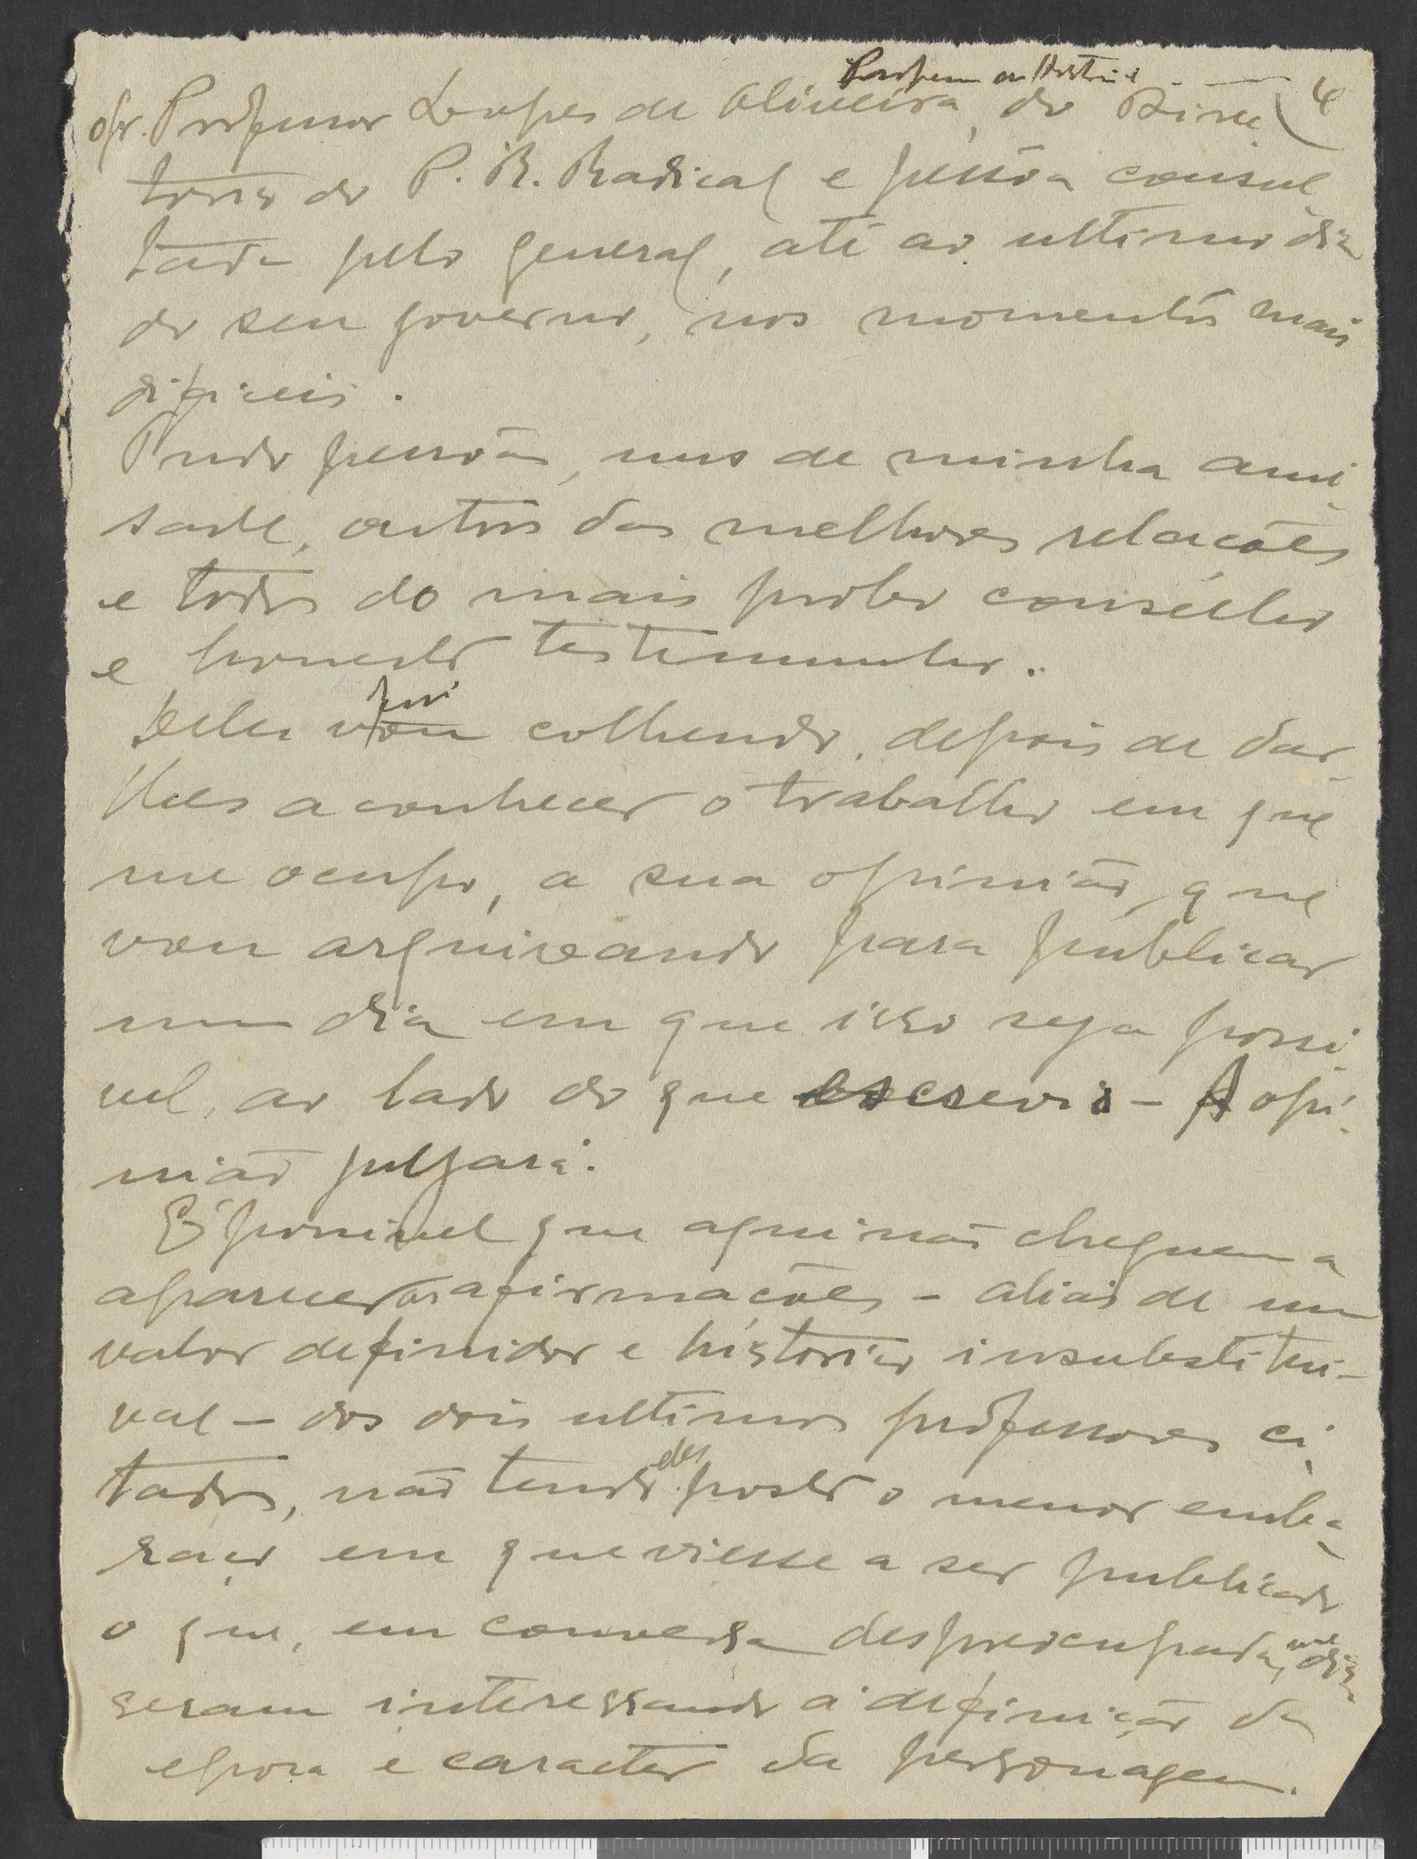 Professor de Historia 4
o sr. Professor Lopes de Oliveira, do Direc
torio do P. R. Radical e pessôa consul
tada pelo general, até ao ultimo dia
do seu governo, nos momentos mais
dificeis.
Tudo pessoas, uns de minha ami-
sade, outros das melhores relacões
e todos do mais probo conselho
e honesto testemunho.
Deles vou fui colhendo, depois de dar-
lhes a conhecer o trabalho em que
me ocupo, a sua opinião, que
vou arquivando para publicar
num dia em que isso seja possi-
vel, ao lado do que escrevi - A opi-
nião julgará.
É possivel que aqui não cheguem a
aparecer as afirmacões - aliás de um
valor definidor e historico insubstitui-
vel - dos dois ultimos professores ci-
tados, não tendo eles posto o menor emba-
raço em que viesse a ser publicado
o que, em conversa despreocupada, me dis-
seram interessando á definição da
epoca e caracter da personagem.